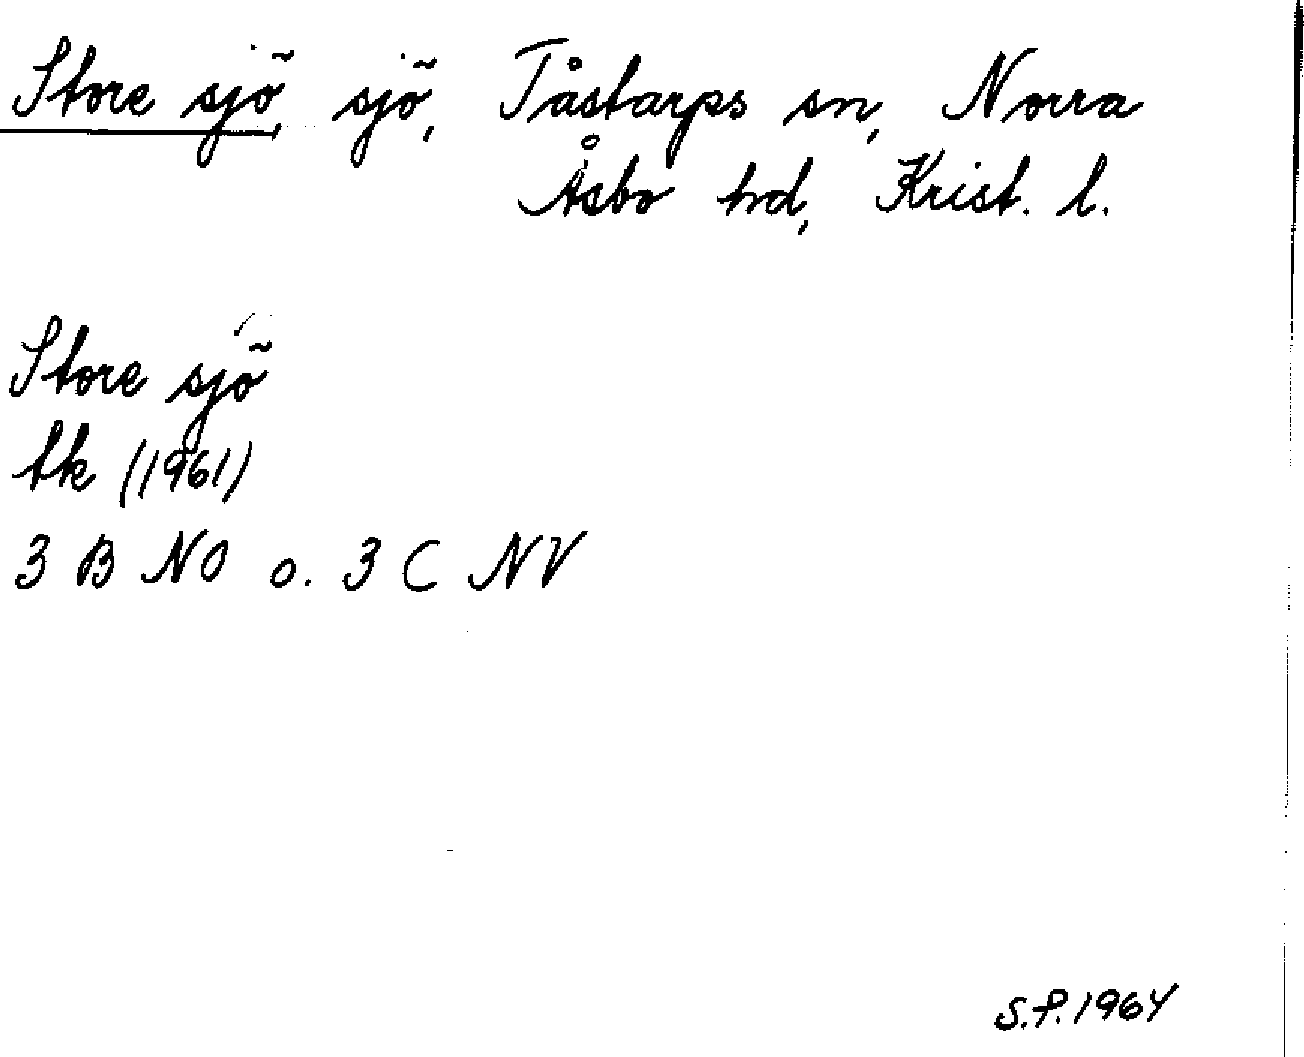 Store sjö, sjö, Tåstarps sn, Norra
Åsbo hd, Krist. l.
Store sjö
tk (1961)
3 B NO o. 3 C NV
S.P. 1964